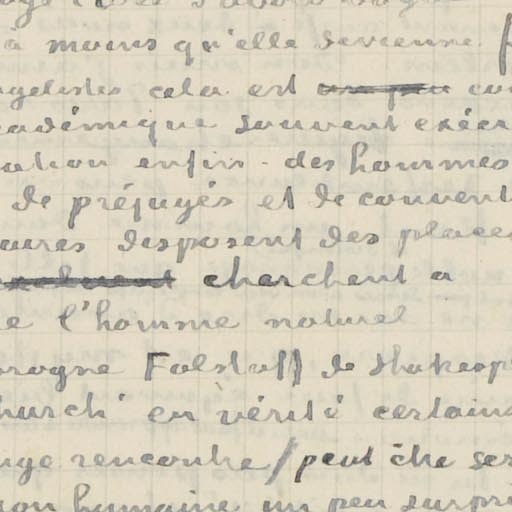 à moins qu'elle devienne
gelistes cela est un peu com
cadémique souvent exécr
ation enfin - des hommes
de préjugés et de convent
aires disposent des places
cherchent a
e l'homme naturel
vrogne Falstaff de Shakesp
church' en vérité certaine
nge rencontre / peut être ser
ion humaine un peu surpri